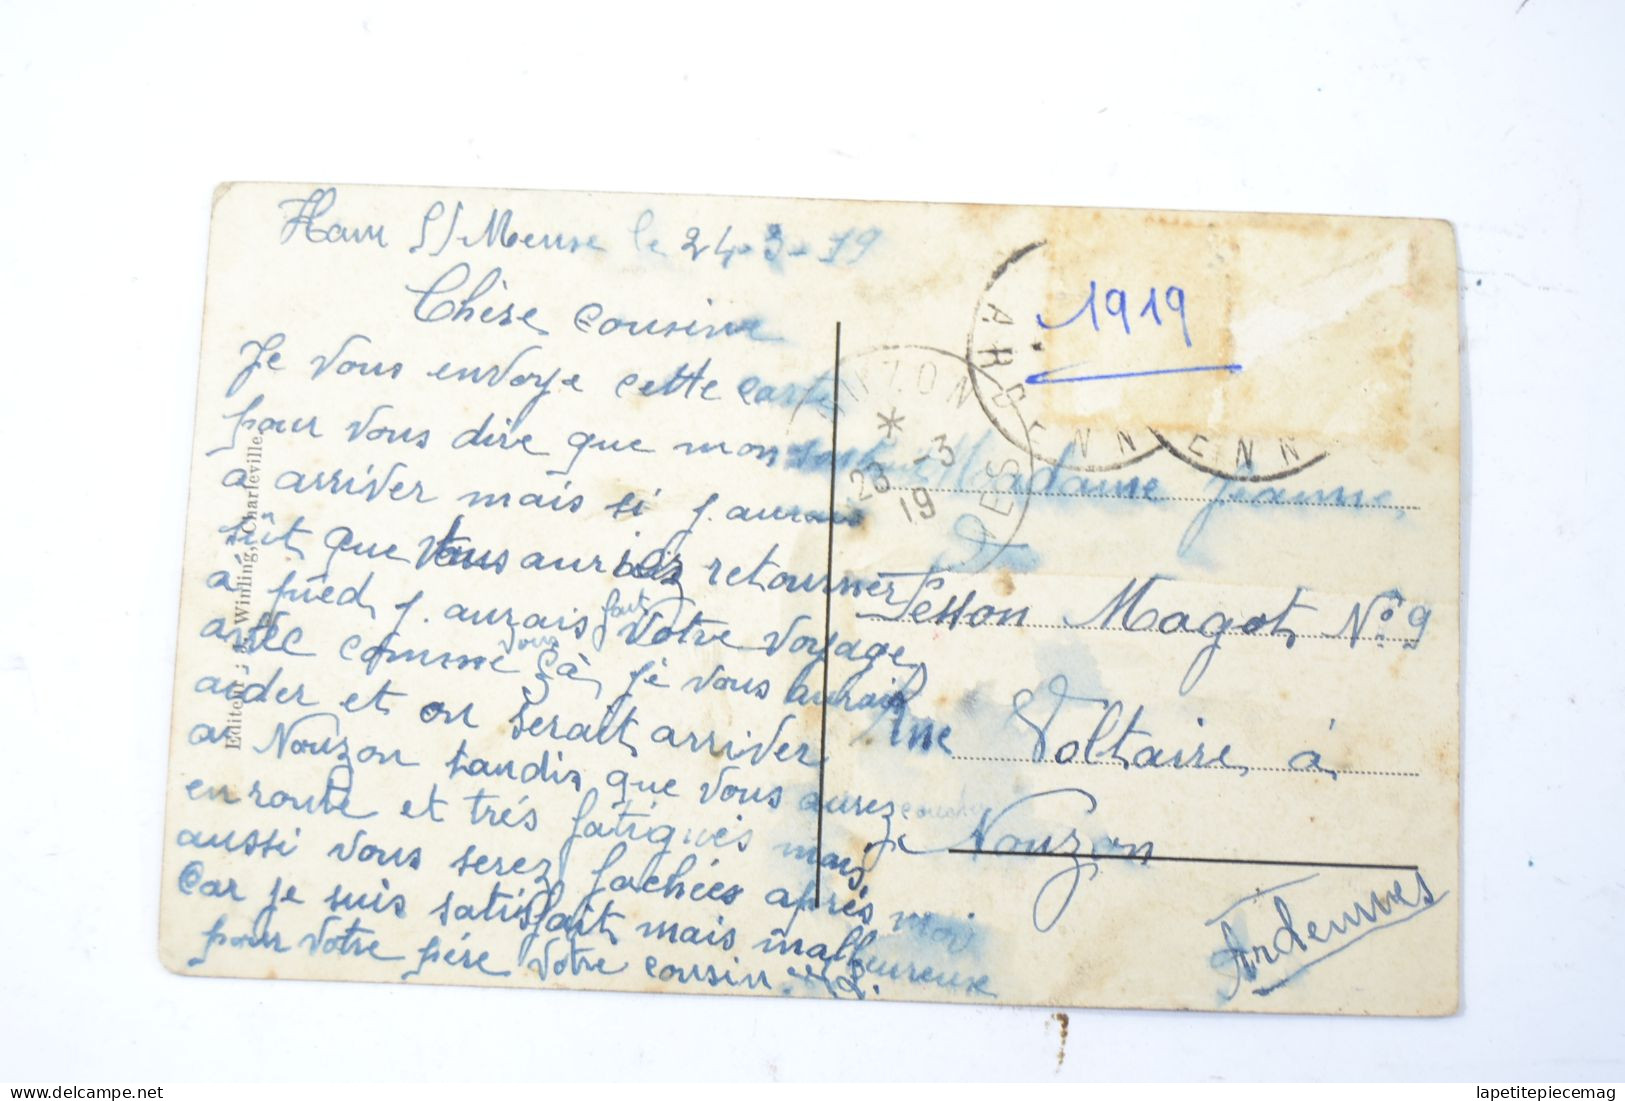 Ham S/ Meuse le 24-3-19
Chère cousine
Je vous envoye cette carte
pour vous dire que mon
a arriver mais si j. aurais
sût que vous auriez retourner
a pied, j. aurais fait votre voyage
avec vous comme çà, je vous aurais
aider et on serait arriver
a Nouzon tandis que vous aurez
en route et très fatigués mais,
aussi vous serez fachées après moi
car je suis satisfait, mais malheureuse
pour votre père votre cousin
Editeur : Winling, Charleville
1919
ARDENN
ENN
NOUZON
*
23 -3
19
DES
Madame Jeanne,
Tesson Magot, No 9
Rue Voltaire, à
Nouzon
Ardennes
delcampe.net
lapetitepiecemag